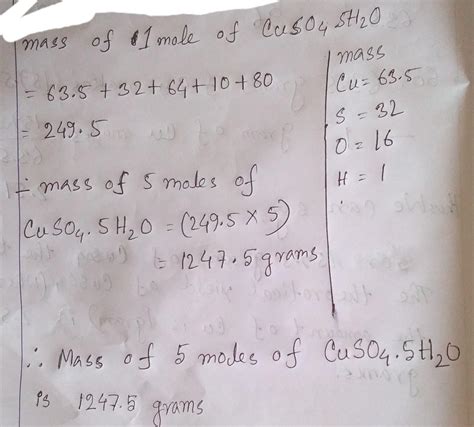 mass of 1 mole of CuSO4 5H2O
= 63.5 + 32 + 64 + 10 + 80
= 249.5
∴ mass of 5 moles of
CuSO4.5H2O = (249.5 × 5)
= 1247.5 grams
mass
Cu = 63.5
S = 32
O = 16
H = 1
∴ Mass of 5 modes of CuSO4.5H2O
is 1247.5 grams